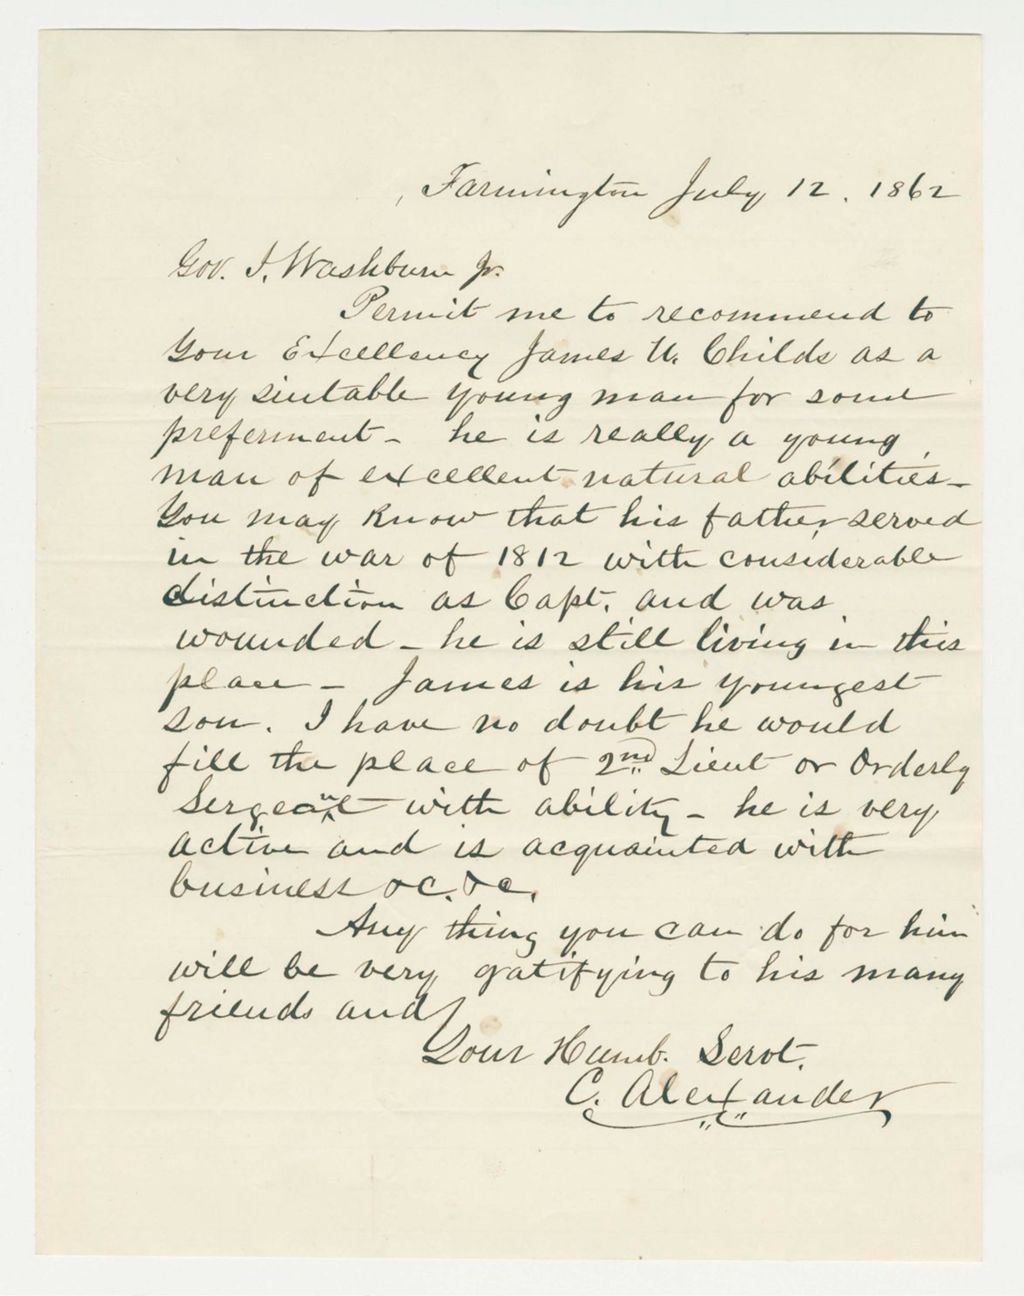 Farmington July 12. 1862
Gov. I. Washburn Jr.
Permit me to recommend to
Your Excellency James W. Childs as a
very suitable young man for some
preferment - he is really a young
man of excellent natural abilities -
You may know that his father served
in the war of 1812 with considerable
distinction as Capt. and was
wounded - he is still living in this
place - James is his youngest
son. I have no doubt he would
fill the place of 2nd Lieut or Orderly
Sergeant with ability - he is very
active and is acquainted with
business &c. &c.
Any thing you can do for him
will be very gratifying to his many
friends and
Your Humb. Servt.
C. Alexander